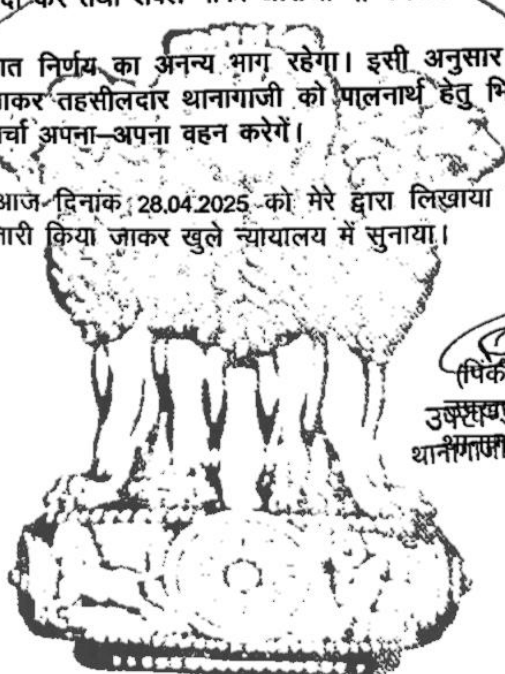 कर तथा
ात निर्णय का अनन्य भाग रहेगा। इसी अनुसार
ाकर तहसीलदार थानागाजी को पालनार्थ हेतु भि
र्चा अपना–अपना वहन करेगें।
आज दिनांक 28.04.2025 को मेरे द्वारा लिखाया
ारी किया जाकर खुले न्यायालय में सुनाया।
(पिंकी